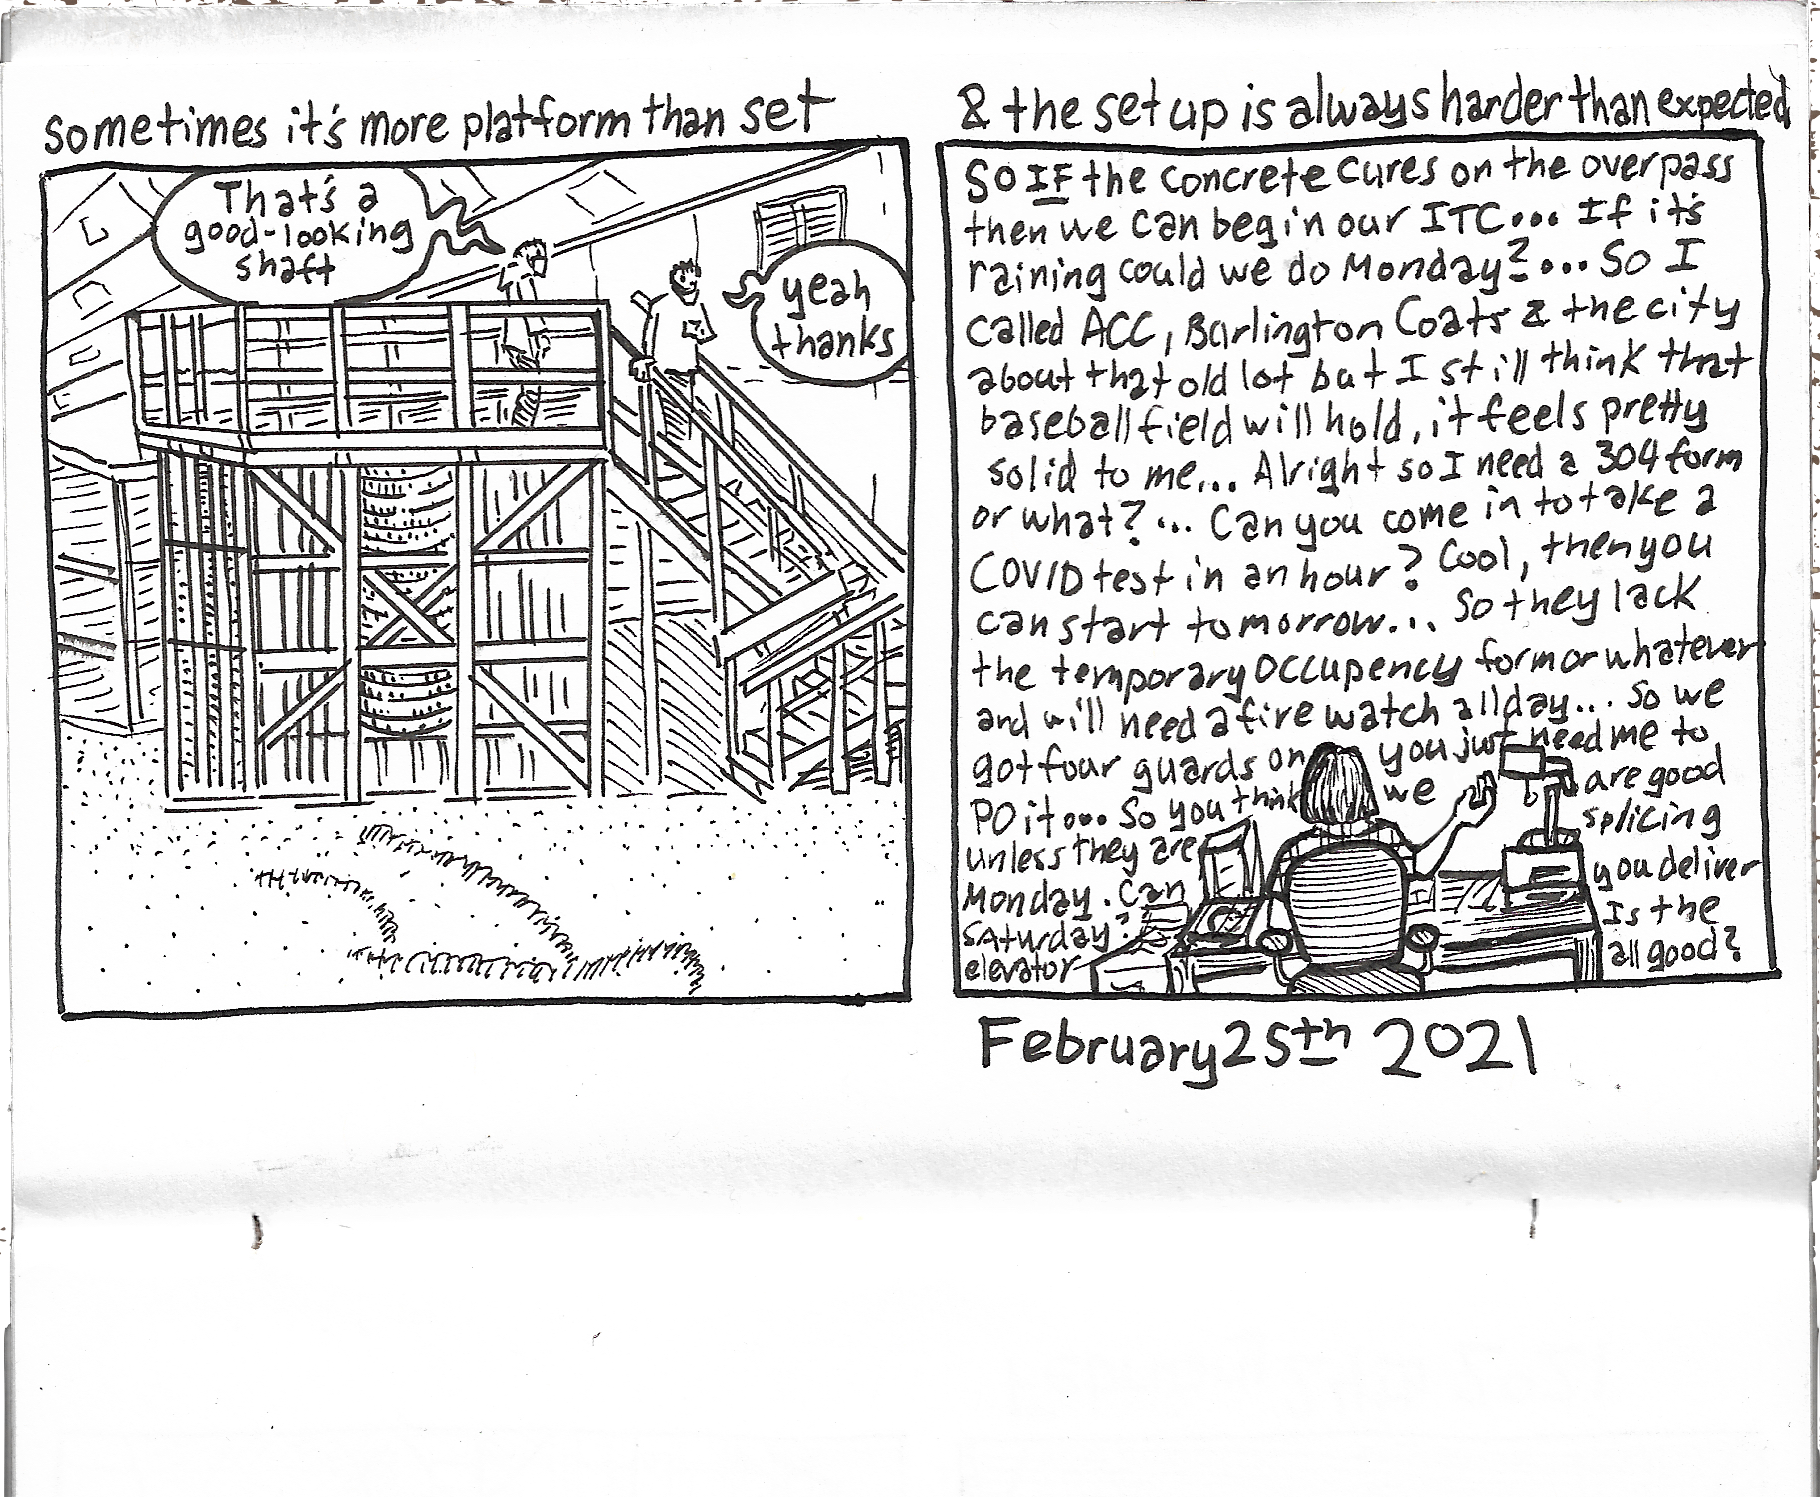 sometimes it's more platform than set
That's a
good-looking
shaft
yeah
thanks
& the set up is always harder than expected
So IF the concrete cures on the overpass
then we can begin our ITC... If it's
raining could we do Monday?... So I
called ACC, Burlington Coats & the city
about that old lot but I still think that
baseball field will hold, it feels pretty
solid to me... Alright so I need a 304 form
or what?... Can you come in to take a
COVID test in an hour? Cool, then you
can start tomorrow... So they lack
the temporary occupency form or whatever
and will need a fire watch all day... So we
got four guards on you just need me to
PO it... So you think we are good
unless they are splicing
Monday. Can you deliver
Saturday? Is the
elevator all good?
February 25th 2021